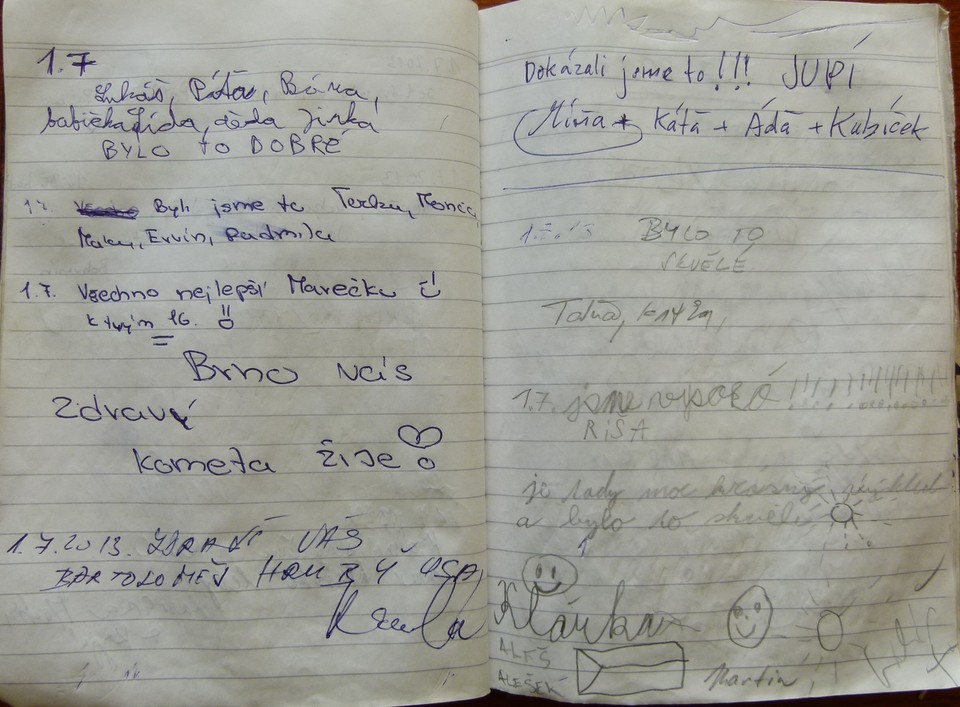 1.7
Lukáš, Pítá, Bára,
babička Lída, děda Jirka
BYLO to DOBRÉ
1.7. Byli jsme tu Terka,
Ervín, Radmila
1.7. Všechno nejlepší Marečku
16. !!
Brno vás
Zdraví
kometa žije
1.7.2013. ZDRAVÍ VÁS
BARTOLOMĚJ HRUBÝ USA,
Dokázali jsme to!!! JUPÍ
Míša + Kátá + Ádá + Kubíček
BYLO TO
SKVĚLÉ
1.7. jsme
RIŠA
je tady moc krásný výhled
a bylo to skvělí
Klárka
ALEŠ
ALEŠEK
Martin